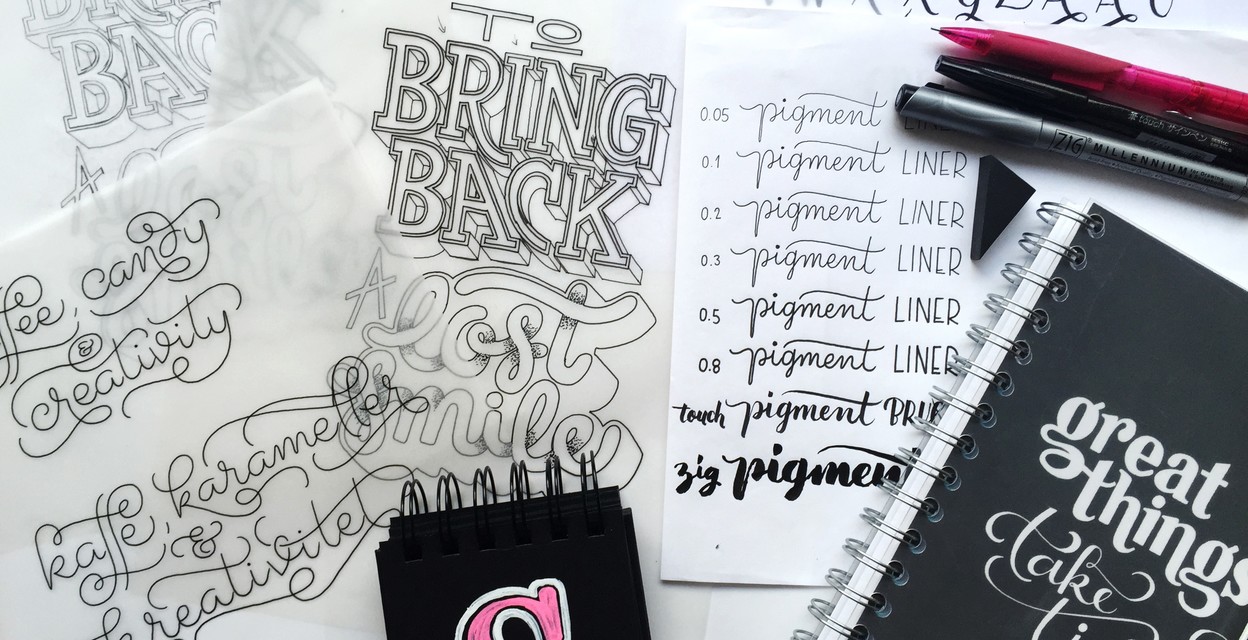 TO
BRING
BACK
A lost
smile
BAC
A
ffee, candy
&
creativity
kaffe, karameller
&
kreativitet
0.05 pigment LINER
0.1 pigment LINER
0.2 pigment LINER
0.3 pigment LINER
0.5 pigment LINER
0.8 pigment LINER
touch pigment BRU
zig pigment
touch サインペン
ZIG MILLENNIUM
great
things
take